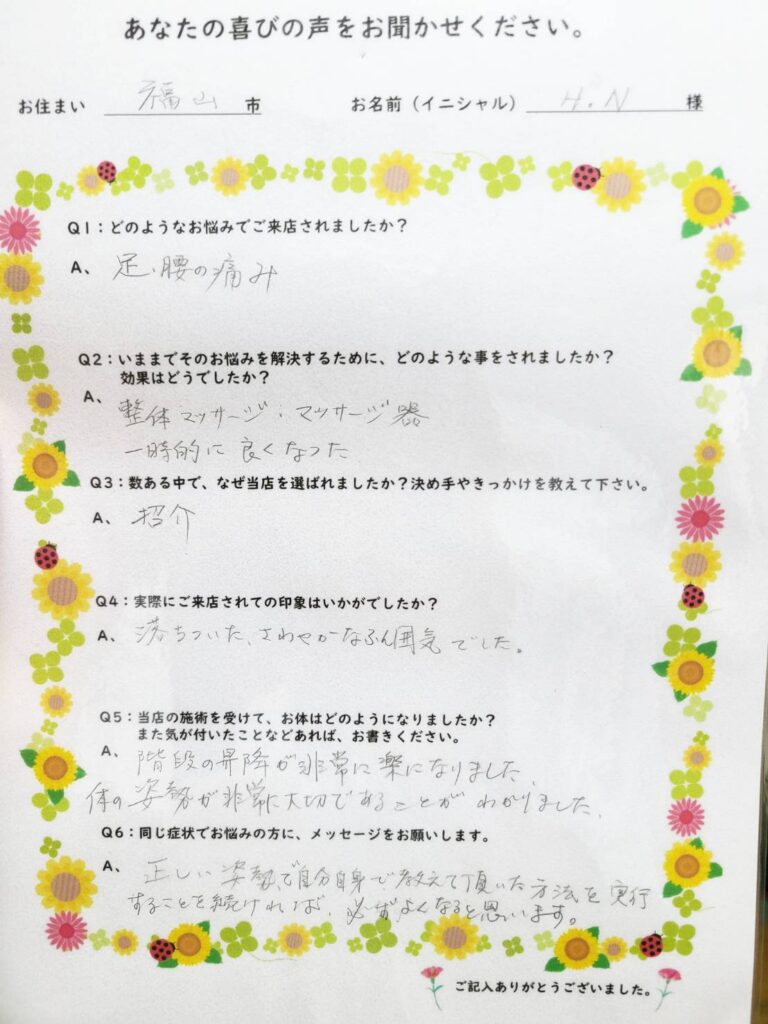 あなたの喜びの声をお聞かせください。
お住まい 福山 市 お名前（イニシャル） H.N 様
Q1：どのようなお悩みでご来店されましたか？
A、 足、腰の痛み
Q2：いままでそのお悩みを解決するために、どのような事をされましたか？
効果はどうでしたか？
A、 整体マッサージ；マッサージ器
一時的に良くなった
Q3：数ある中で、なぜ当店を選ばれましたか？決め手やきっかけを教えて下さい。
A、 招介
Q4：実際にご来店されての印象はいかがでしたか？
A、 落ちついた、さわやかなふん囲気でした。
Q5：当店の施術を受けて、お体はどのようになりましたか？
また気が付いたことなどあれば、お書きください。
A、 階段の昇降が非常に楽になりました、
体の姿勢が非常に大切であることがわかりました、
Q6：同じ症状でお悩みの方に、メッセージをお願いします。
A、 正しい姿勢で自分自身で教えて頂いた方法を実行
することを続ければ、必ずよくなると思います。
ご記入ありがとうございました。